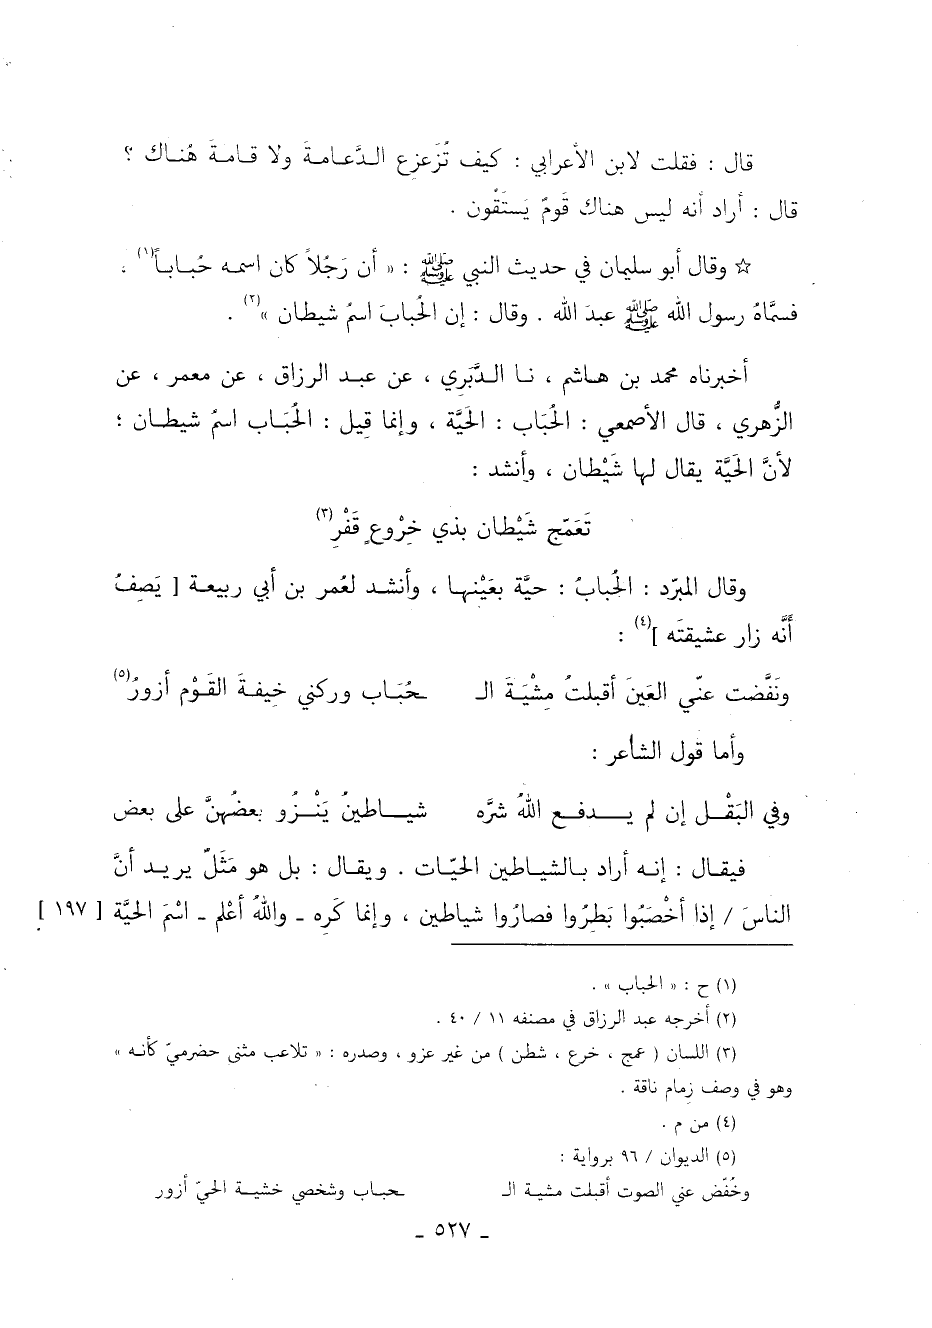 قال : فقلت لابن الأعرابي : كيف تُزَعزع الدَّعامةَ ولا قامةَ هُناك ؟
قال : أراد أنه ليس هناك قَومٌ يَستَقُون .
☆ وقال أبو سليمان في حديث النبي ﷺ : « أن رَجُلاً كان اسمه حُباباً(١) .
فسمَّاهُ رسول الله ﷺ عبدَ الله . وقال : إن الحُبابَ اسمُ شيطان »(٢) .
أخبرناه محمد بن هاشم ، نا الدَّبَري ، عن عبد الرزاق ، عن معمر ، عن
الزُّهري ، قال الأصمعي : الحُبَاب : الحَيَّة ، وإنما قِيل : الحُبَاب اسمُ شيطان ؛
لأنَّ الحَيَّة يقال لها شَيْطان ، وأنشد :
تَعَمّج شَيْطان بذي خِرْوعٍ قَفْرِ(٣)
وقال المبرّد : الحُبابُ : حيَّة بعَيْنها ، وأنشد لعُمر بن أبي ربيعة [ يَصفُ
أنَّه زار عشيقتَه ](٤) :
ونَفَّضت عنّي العَينَ أقبلتُ مشْيَةَ الـ ـحُبَاب وركني خيفةَ القَوْم أزورُ(٥)
وأما قول الشاعر :
وفي البَقْل إن لم يدفع اللهُ شرَّه شياطينُ يَنْزُو بعضُهنَّ على بعض
فيقال : إنه أراد بالشياطين الحيّات . ويقال : بل هو مَثَلٌ يريد أنَّ
الناسَ / إذا أخْصَبُوا بَطِرُوا فصارُوا شياطين ، وإنما كَره ـ واللهُ أعْلم ـ اسْمَ الحيَّة [ ١٩٧ ]
(١) ح : « الحباب » .
(٢) أخرجه عبد الرزاق في مصنفه ١١ / ٤٠ .
(٣) اللسان ( عمج ، خرع ، شطن ) من غير عزو ، وصدره : « تلاعب مثنى حضرميّ كأنه »
وهو في وصف زمام ناقة .
(٤) من م .
(٥) الديوان / ٩٦ برواية :
وخُفّض عني الصوت أقبلت مشية الـ ـحباب وشخصي خشية الحيّ أزور
ـ ٥٢٧ ـ